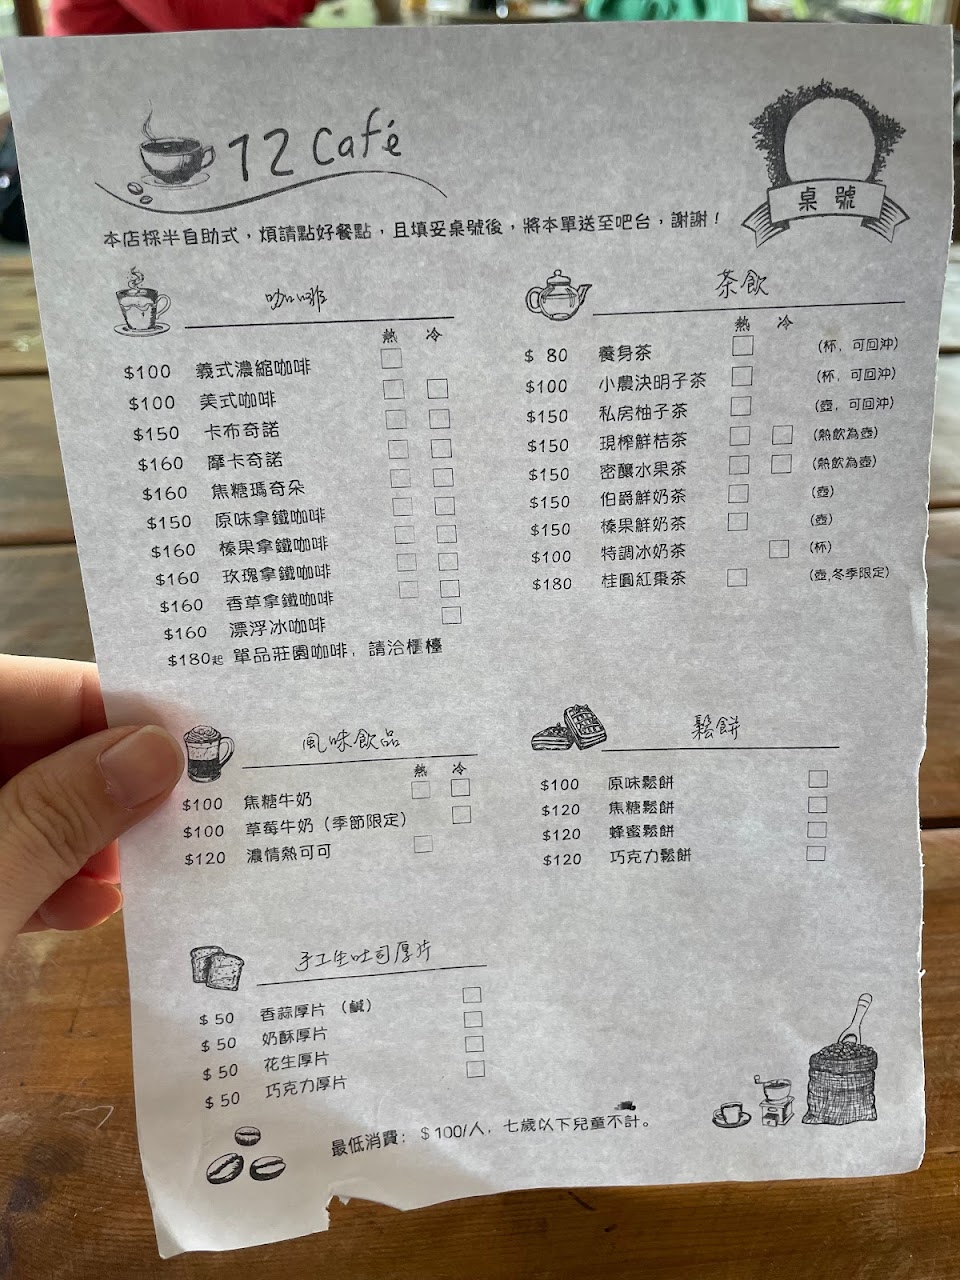 12 Café
桌號
本店採半自助式，煩請點好餐點，且填妥桌號後，將本單送至吧台，謝謝！
咖啡
熱 冷
$100 義式濃縮咖啡
$100 美式咖啡
$150 卡布奇諾
$160 摩卡奇諾
$160 焦糖瑪奇朵
$150 原味拿鐵咖啡
$160 榛果拿鐵咖啡
$160 玫瑰拿鐵咖啡
$160 香草拿鐵咖啡
$160 漂浮冰咖啡
$180起 單品莊園咖啡，請洽櫃檯
茶飲
熱 冷
$ 80 養身茶 (杯，可回沖)
$100 小農決明子茶 (杯，可回沖)
$150 私房柚子茶 (壺，可回沖)
$150 現榨鮮桔茶 (熱飲為壺)
$150 密釀水果茶 (熱飲為壺)
$150 伯爵鮮奶茶 (壺)
$150 榛果鮮奶茶 (壺)
$100 特調冰奶茶 (杯)
$180 桂圓紅棗茶 (壺,冬季限定)
風味飲品
熱 冷
$100 焦糖牛奶
$100 草莓牛奶（季節限定）
$120 濃情熱可可
鬆餅
$100 原味鬆餅
$120 焦糖鬆餅
$120 蜂蜜鬆餅
$120 巧克力鬆餅
手工生吐司厚片
$ 50 香蒜厚片 （鹹）
$ 50 奶酥厚片
$ 50 花生厚片
$ 50 巧克力厚片
最低消費：$100/人，七歲以下兒童不計。